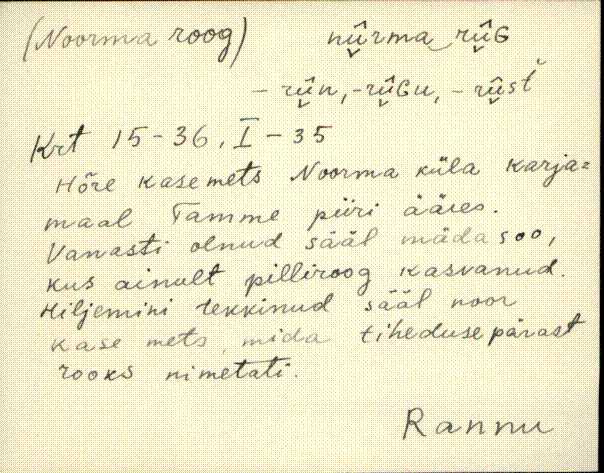 (Noorma roog) nû̬rma‿rû̬G
– rû̬n, -rû̬Gu, – rû̬st̆
Krt 15-36, I-35
Hõre kasemets Noorma küla karja=
maal Tamme piiri ääres.
Vanasti olnud sääl mädasoo,
kus ainult pilliroog kasvanud.
Hiljemini tekkinud sääl noor
kase mets, mida tihedusepärast
rooks nimetati.
Rannu